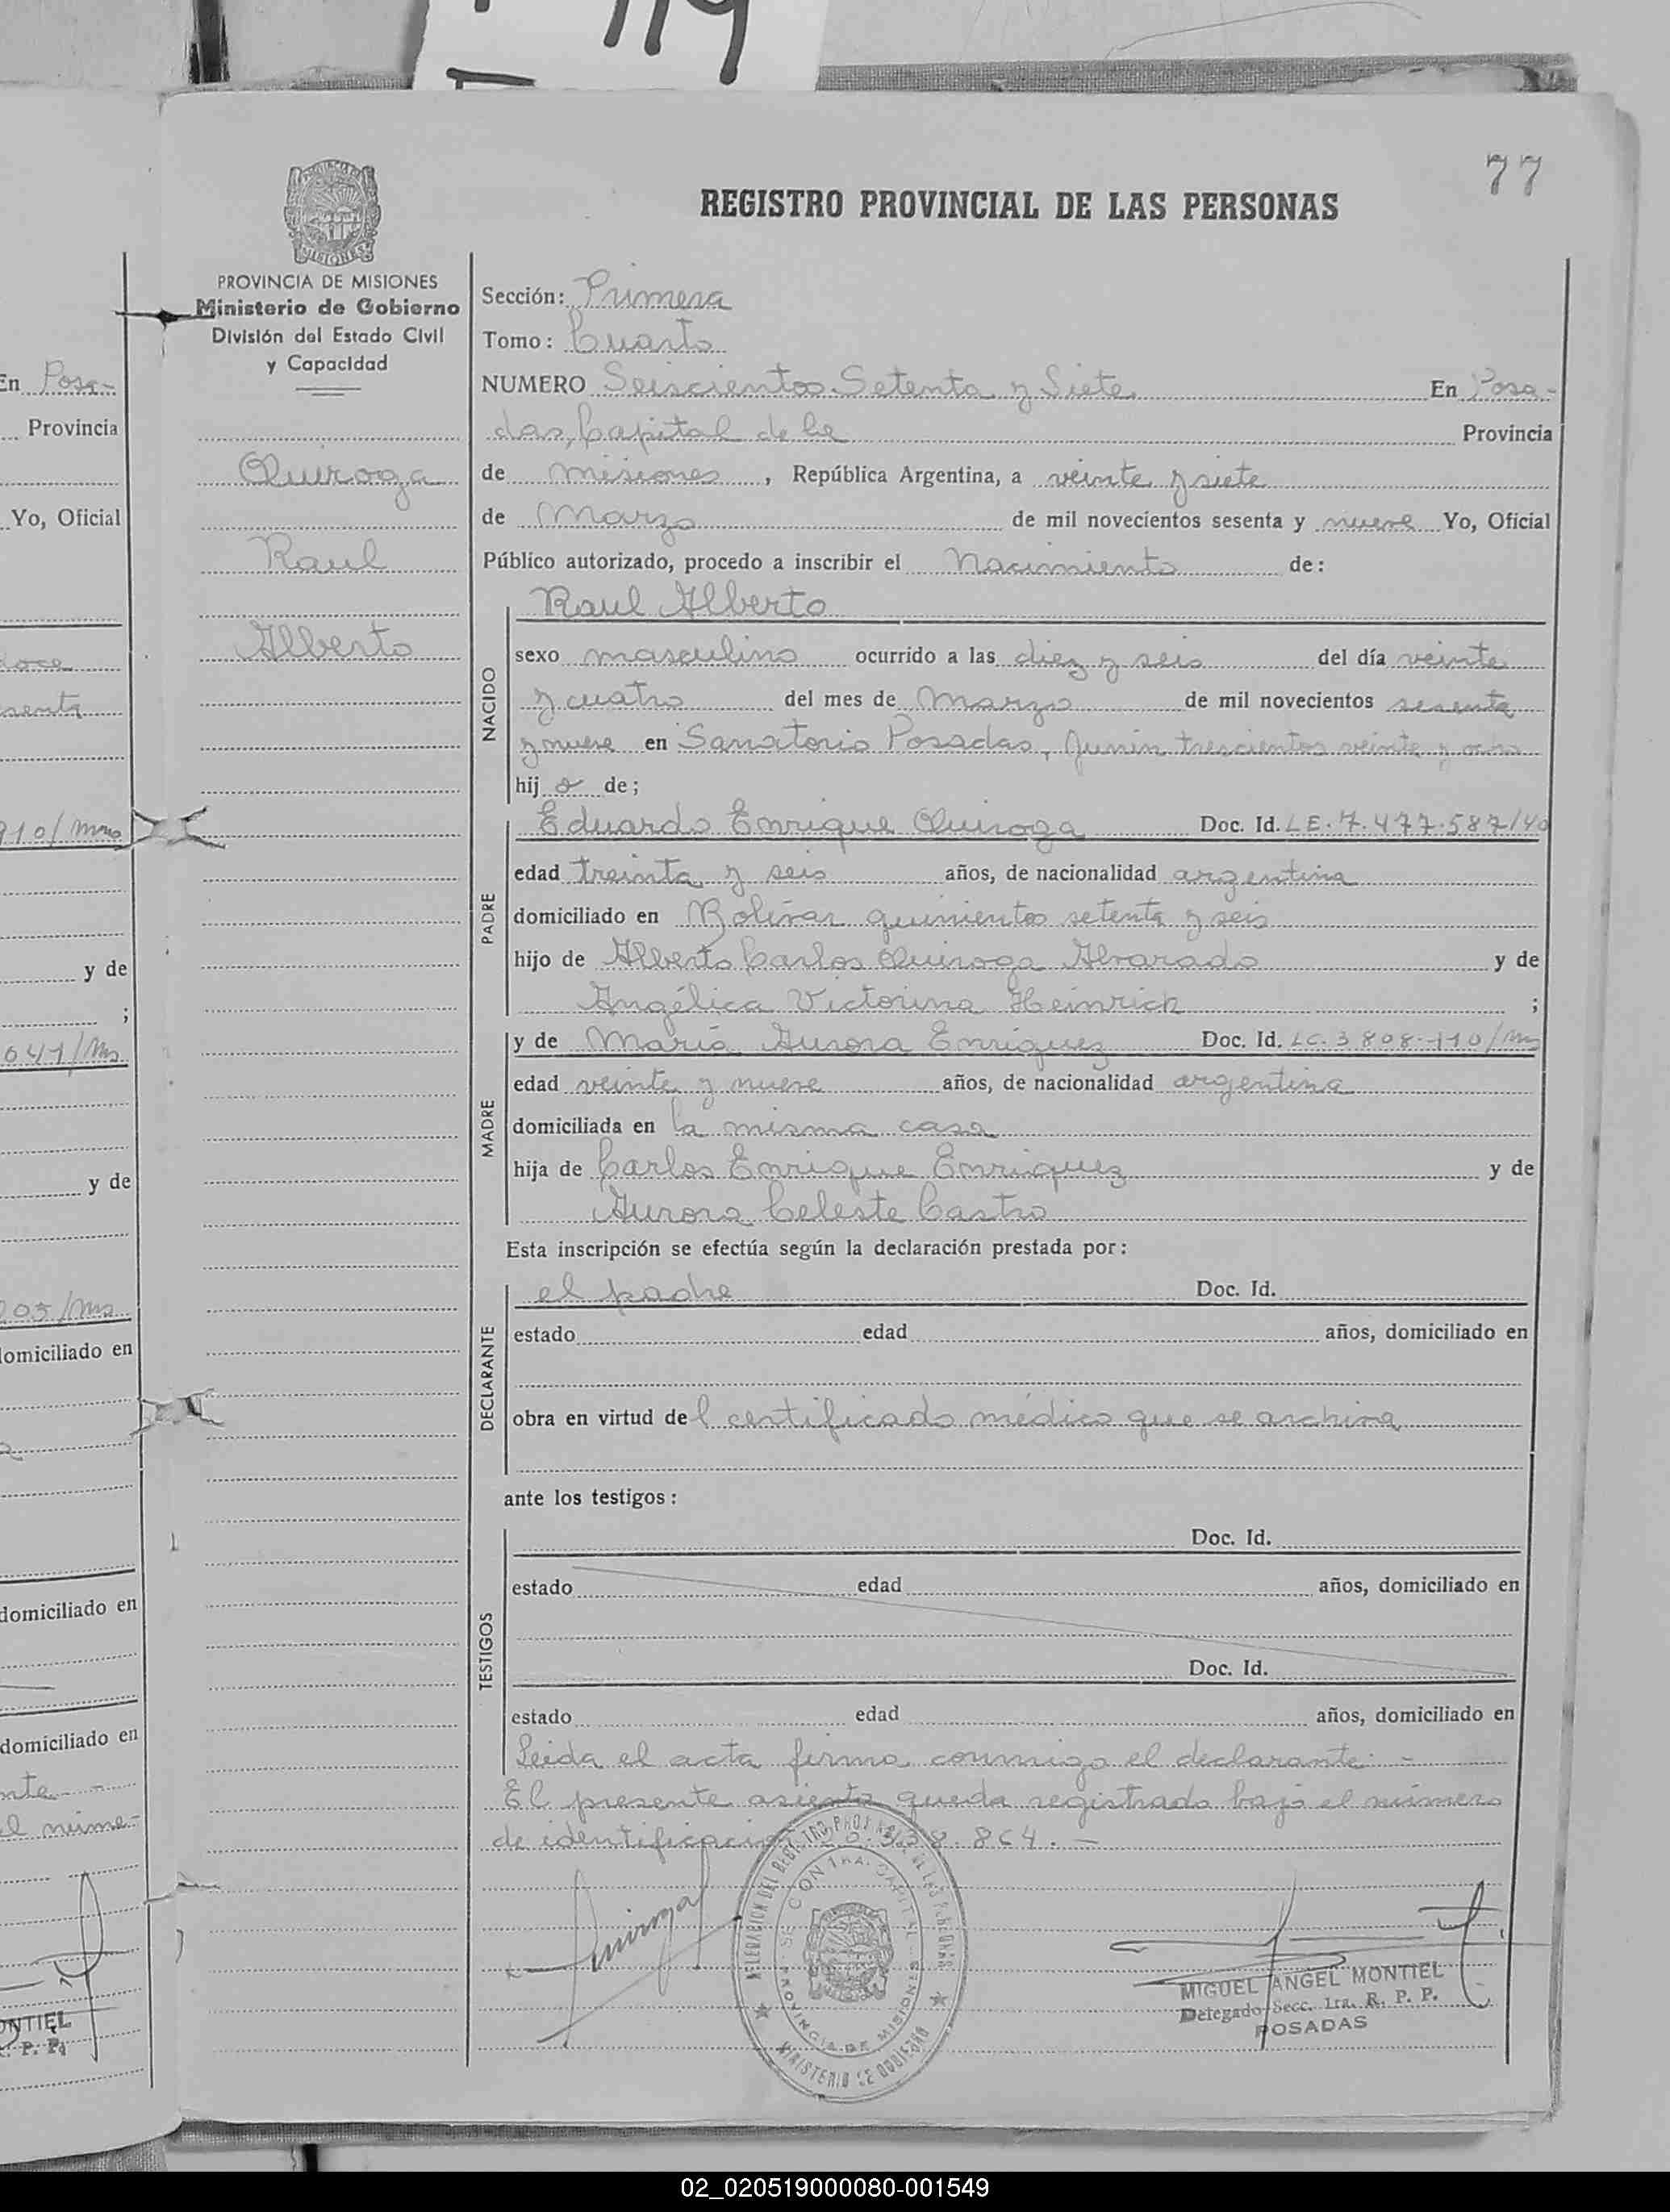 77
REGISTRO PROVINCIAL DE LAS PERSONAS
PROVINCIA DE MISIONES
Ministerio de Gobierno
División del Estado Civil
y Capacidad
Quiroga
Raul
Alberto
Sección: Primera
Tomo: Cuarto
NUMERO Seiscientos Setenta y Siete En Posa-
das, Capital de la Provincia
de misiones, República Argentina, a veinte y siete
de Marzo de mil novecientos sesenta y nueve Yo, Oficial
Público autorizado, procedo a inscribir el Nacimiento de:
Raul Alberto
NACIDO
sexo masculino ocurrido a las diez y seis del día veinte
y cuatro del mes de Marzo de mil novecientos sesenta
y nueve en Sanatorio Posadas, Junin trescientos veinte y ocho
hij o de;
PADRE
Eduardo Enrique Quiroga Doc. Id. LE. 7.477.587/40
edad treinta y seis años, de nacionalidad argentina
domiciliado en Bolívar quinientos setenta y seis
hijo de Alberto Carlos Quiroga Alvarado y de
Angélica Victorina Heinrich ;
MADRE
y de María Aurora Enriquez Doc. Id. LC. 3.808.110/Ms
edad veinte y nueve años, de nacionalidad argentina
domiciliada en la misma casa
hija de Carlos Enrique Enriquez y de
Aurora Celeste Castro
Esta inscripción se efectúa según la declaración prestada por:
DECLARANTE
el padre Doc. Id.
estado edad años, domiciliado en
obra en virtud del certificado médico que se archiva
ante los testigos:
TESTIGOS
Doc. Id.
estado edad años, domiciliado en
Doc. Id.
estado edad años, domiciliado en
Leida el acta firma conmigo el declarante.-
El presente asiento queda registrado bajo el número
de identificación 864.-
Quiroga
PROVINCIA DE MISIONES
MINISTERIO DE GOBIERNO
MIGUEL ANGEL MONTIEL
Delegado Secc. 1ra. R. P. P.
POSADAS
En Posa-
Provincia
Yo, Oficial
doce
910/Mnes
y de
;
641/Ms
y de
domiciliado en
domiciliado en
domiciliado en
02_020519000080-001549